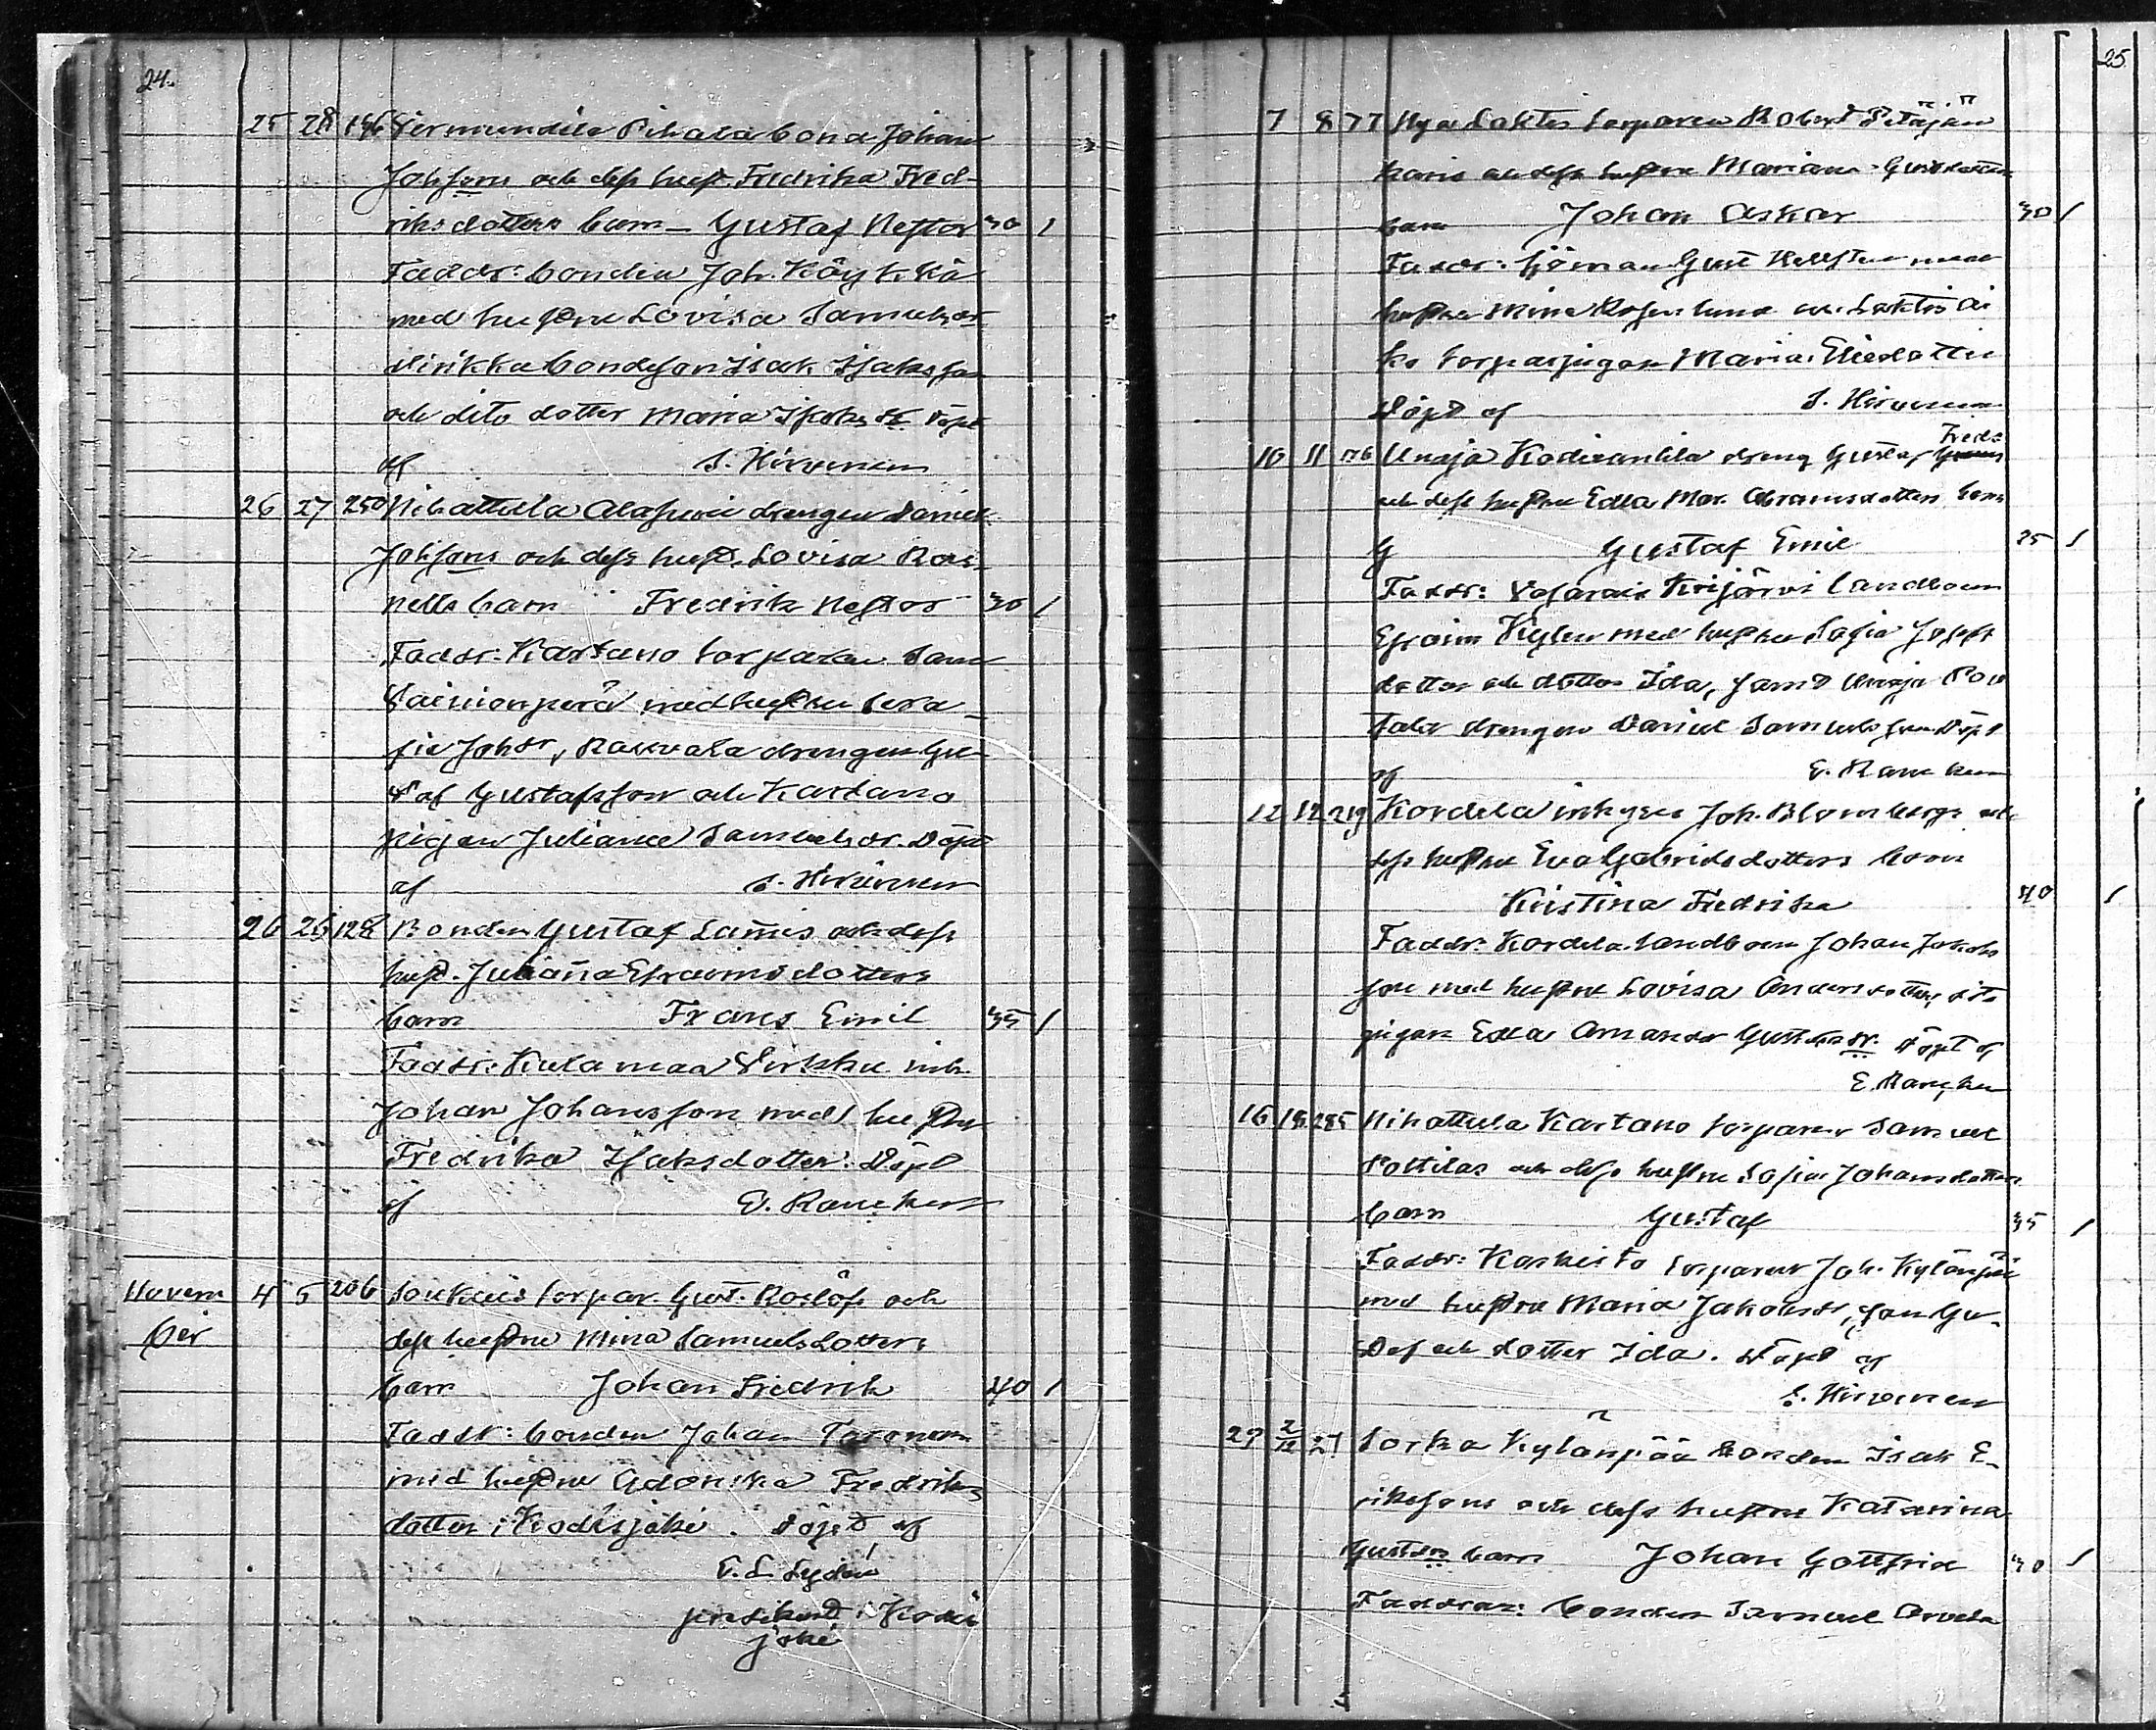 24.
25 28 196 Vermundila Pihala bond Johan
Johssons och dess hust. Fredrika Fred-
riksdotters barn - Gustaf Nestor 30 /
Faddr: bonden Joh. Köykkä
med hustru Lovisa Samuelsdr
Sirikka bondeson Isak Isaksson
och dito dotter Maria Isaksdr Döpt
af S. Hirvinen
26 27 250 Nihattula Alasuni drengen Daniel
Johssons och dess hust. Lovisa Ros-
nells barn Fredrik Nestor 30 /
Faddr: Kartano torparen Sam
Vainionperä med hustru Sera-
fia Johdr, Raukala drengen Gu-
staf Gustafsson och Kartano
pigan Juliana Samuelsdr. Döpt
af S. Hirvinen
26 26 128 Bonden Gustaf Lamis och dess
hust. Juliana Efraimsdotters
barn Frans Emil 35 /
Faddr: Kulamaa inh.
Johan Johansson med hustru
Fredrika Isaksdotter. Döpt
af E. Rancken
Novem
ber
4 5 206 Soukais torpar. Gust. Roslöfs och
dess hustru Mina Samuelsdotters
barn Johan Fredrik 40 /
Faddr: bonden Johan
med hustru Fredriks
dotter i Kodisjoki. Döpt af
Lydén
predikant i Kodis
joki
25
7 8 77 Nya Laktis torparen Robert Petäjän
och dess hustru Mariana Gustdotters
barn Johan Oskar 30 /
Faddr: sjöman Gust Hellsten med
hustru Mina Rosenlund och Laktis
torparpigan Maria Eliedotter
Döpt af S. Hirvinen
10 11 176 Unaja Kodivanhila dreng Gustaf Freds
och dess hustru Edla Mar. Abramsdotters barn
G Gustaf Emil 25 /
Faddr: Vasarais Krijärvi landboen
Efraim Kylen med hustru Sofia Josefs
dotter och dotter Ida, samt Unaja Pou
tala drengen Daniel Samuelsson. Döpt
af E. Rancken
12 12 219 Kordela inhyses Joh. Blombergs och
dess hustru Eva Gabrielsdotters barn
Kristina Fredrika 40 /
Faddr: Kordela landboen Johan Jakobs
son med hustru Lovisa Andersdotter, dito
pigan Edla Amanda Gustafsdr. Döpt af
E. Rancken
16 18 285 Nihattula Kartano torparen Samuel
Pottilas och dess hustru Sofia Johansdotters
barn Gustaf 35 /
Faddr: Koskisto torparen Joh. Kylänpää
med hustru Maria Jakobsdr, son Gu-
staf och dotter Ida. Döpt af
S. Hirvinen
29 2/12 27 Sorka Kylänpää bonden Isak E-
rikssons och dess hustru Katarina
Gustdrs barn Johan Gottfrid 30 /
Faddrar: bonden Samuel Arvela